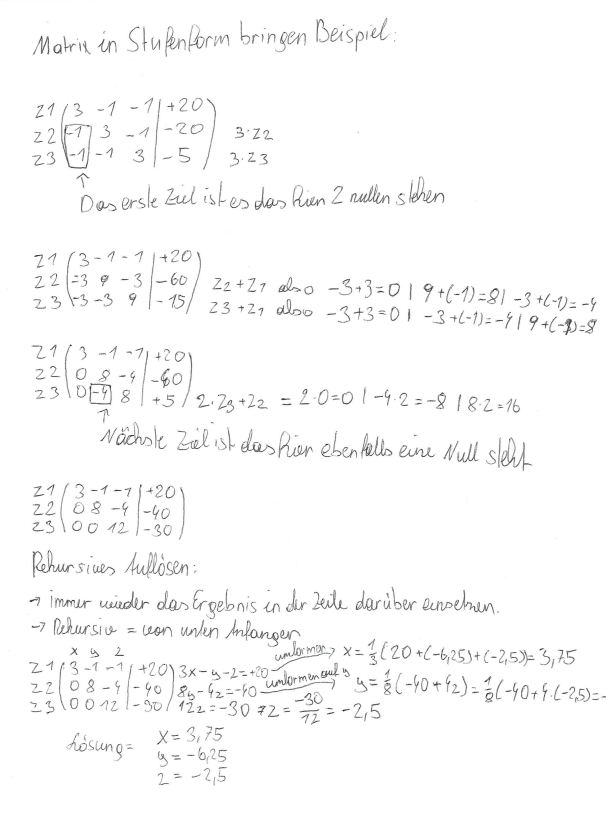 Matrix in Stufenform bringen Beispiel:
Z1 ( 3 -1 -1 | +20 )
Z2 ( -1 3 -1 | -20 ) 3·Z2
Z3 ( -1 -1 3 | -5 ) 3·Z3
↑
Das erste Ziel ist es das hier 2 nullen stehen
Z1 ( 3 -1 -1 | +20 )
Z2 ( -3 9 -3 | -60 ) Z2+Z1 also -3+3=0 | 9+(-1)=8 | -3+(-1)=-4
Z3 ( -3 -3 9 | -15 ) Z3+Z1 also -3+3=0 | -3+(-1)=-4 | 9+(-1)=8
Z1 ( 3 -1 -1 | +20 )
Z2 ( 0 8 -4 | -40 )
Z3 ( 0 -4 8 | +5 ) 2·Z3+Z2 = 2·0=0 | -4·2=-8 | 8·2=16
↑
Nächste Ziel ist das hier ebenfalls eine Null steht
Z1 ( 3 -1 -1 | +20 )
Z2 ( 0 8 -4 | -40 )
Z3 ( 0 0 12 | -30 )
Rekursives Auflösen:
→ immer wieder das Ergebnis in der Zeile darüber einsetzen.
→ Rekursiv = von unten Anfangen
x y z
Z1 ( 3 -1 -1 | +20 ) 3x-y-z=+20 umformen→ x=1/3(20+(-6,25)+(-2,5))=3,75
Z2 ( 0 8 -4 | -40 ) 8y-4z=-40 umformen auf y→ y=1/8(-40+4z)=1/8(-40+4·(-2,5)=-
Z3 ( 0 0 12 | -30 ) 12z=-30 →z=-30/12=-2,5
Lösung= x=3,75
y=-6,25
z=-2,5